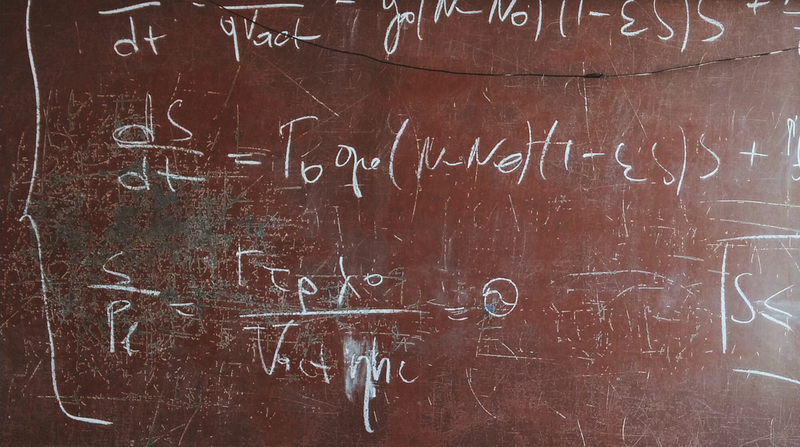 dt qVact - g₀(N-N₀)(1-εS)S +
dS/dt = Γ₀g₀(N-N₀)(1-εS)S +
S/Pf = Γτpλ₀/Vactηhc =
S≤